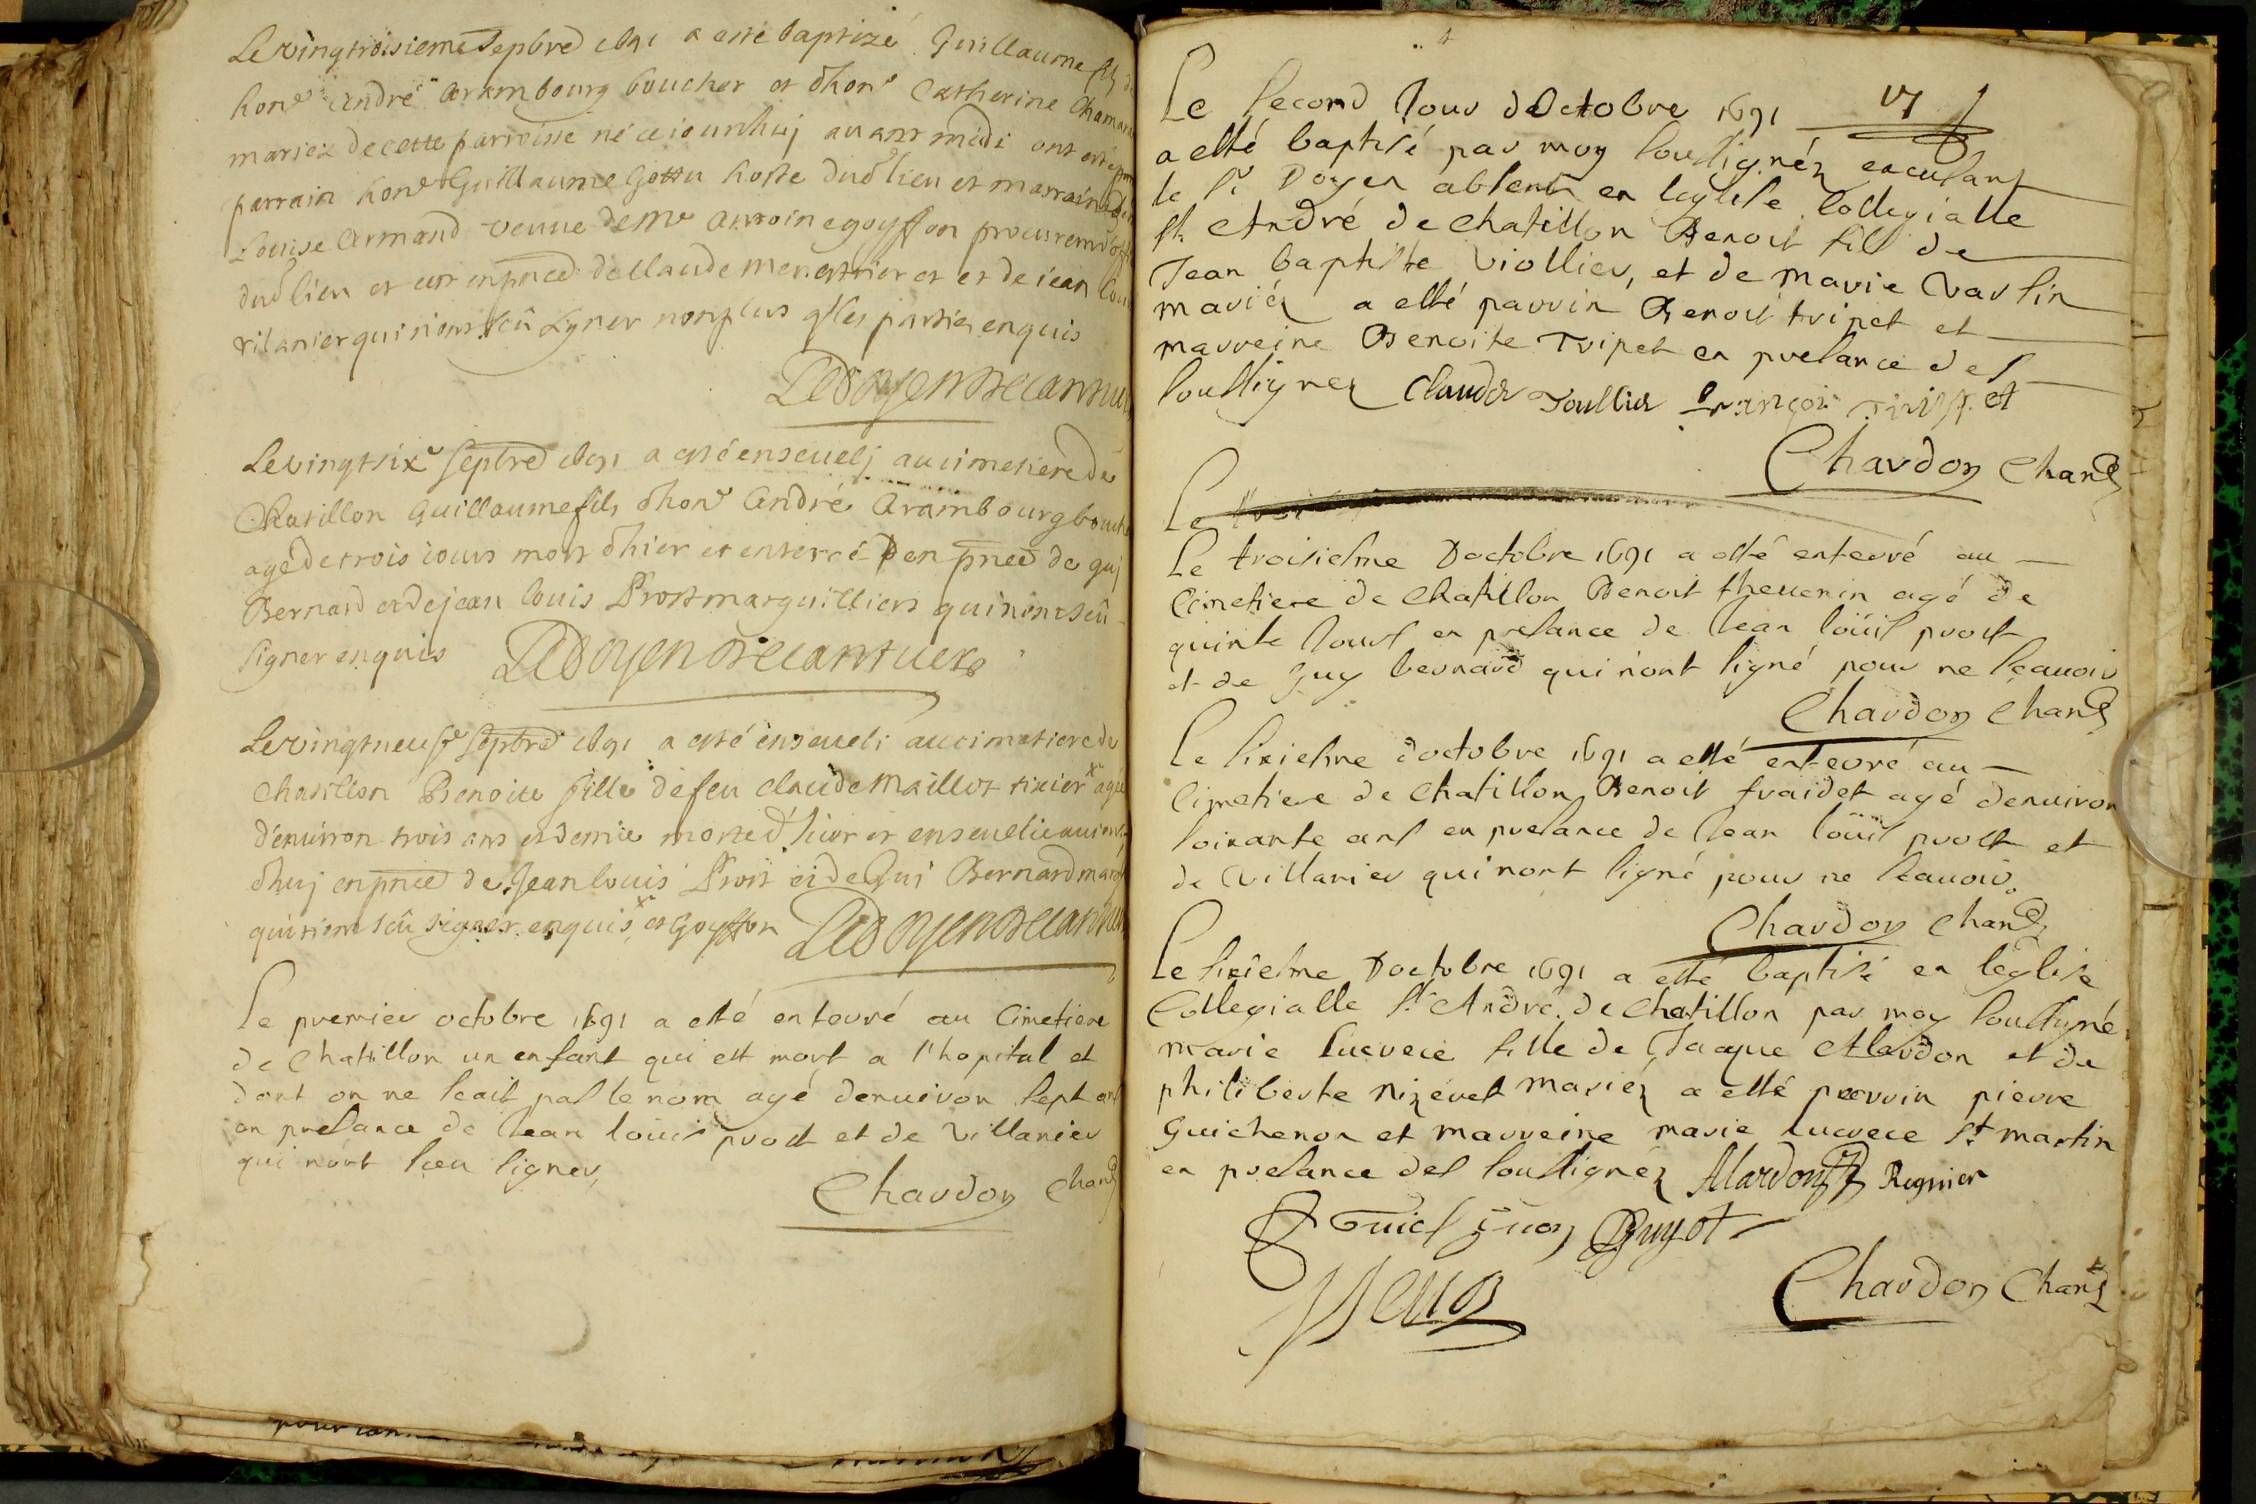 Le vingtroisieme Sepbre 1691 a esté baptizé Guillaume fils
hone André Arambourg boucher et dhone Catherine
mariez de cette parroisse né ce iourdhuj auant midi ont esté
parrain hone Guillaume Gottu hoste dud lieu et marraine
Louise Armand veuue de Me Antoine goyffon procureur
dud lieu et ce en pnce de Claude Menestrier et et de iean
vilanier qui n'ont sceû signer non plus q les parties enquis
Le doyen
Le vingtsixe septbre 1691 a esté enseuelj au cimetiere de
Chatillon Guillaume fils dhone André Arambourg
agé de trois iours mort dhier et enterré en pnce de guj
Bernard et de jean louis Prost marguilliers qui n'ont sceû
signer enquis Le doyen
Le vingtneufe septbre 1691 a esté enseueli au cimetiere de
Chatillon Benoite fille de feu Claude Maillot tixier
d'enuiron trois ans et demie morte d'hier et enseuelie
dhuj en pnce de Jean louis Prost et de Gui Bernard
qui n'ont sceû signer enquis et Goyffon Le doyen
Le premier octobre 1691 a esté enterré au Cimetiere
de Chatillon un enfant qui est mort a l'hopital et
dont on ne scait pas le nom agé denuiron sept ans
en presance de Jean louis prost et de Villanier
qui n'ont sceu signer,
Chardon Chane
17
Le second Jour dOctobre 1691
a esté baptisé par moy soussignéz
le Sr Doyen absent en leglise Collegialle
St André de Chatillon Benoit fils de
Jean baptiste Viollier, et de Marie Varlin
mariéz a esté parrin Benoit tripet et
marreine Benoite Tripet en presance des
soussignez Claude Joullier François Tripet
Chardon Chane
Le
Le troisiesme Doctobre 1691 a esté enterré au
Cimetiere de Chatillon Benoit theuenin agé de
quinte Jours en presance de Jean loüis prost
et de Guy bernard qui n'ont signé pour ne scauoir
Chardon Chane
Le sixiesme doctobre 1691 a esté enterré au
Cimetiere de Chatillon Benoit fraidet agé denuiron
soixante ans en presance de Jean loüis prost et
de Villanier qui n'ont signé pour ne scauoir.
Chardon Chane
Le sixiesme Doctobre 1691 a esté baptisé en léglise
Collegialle St André de Chatillon par moy soussigné
marie lucrece fille de Jaque Alardon et de
philiberte nizeret mariéz a esté parrin pierre
Guichenon et marreine marie lucrece St martin
en presance des soussignéz Alardon Regnier
Guichenon Guyot
Chardon Chane